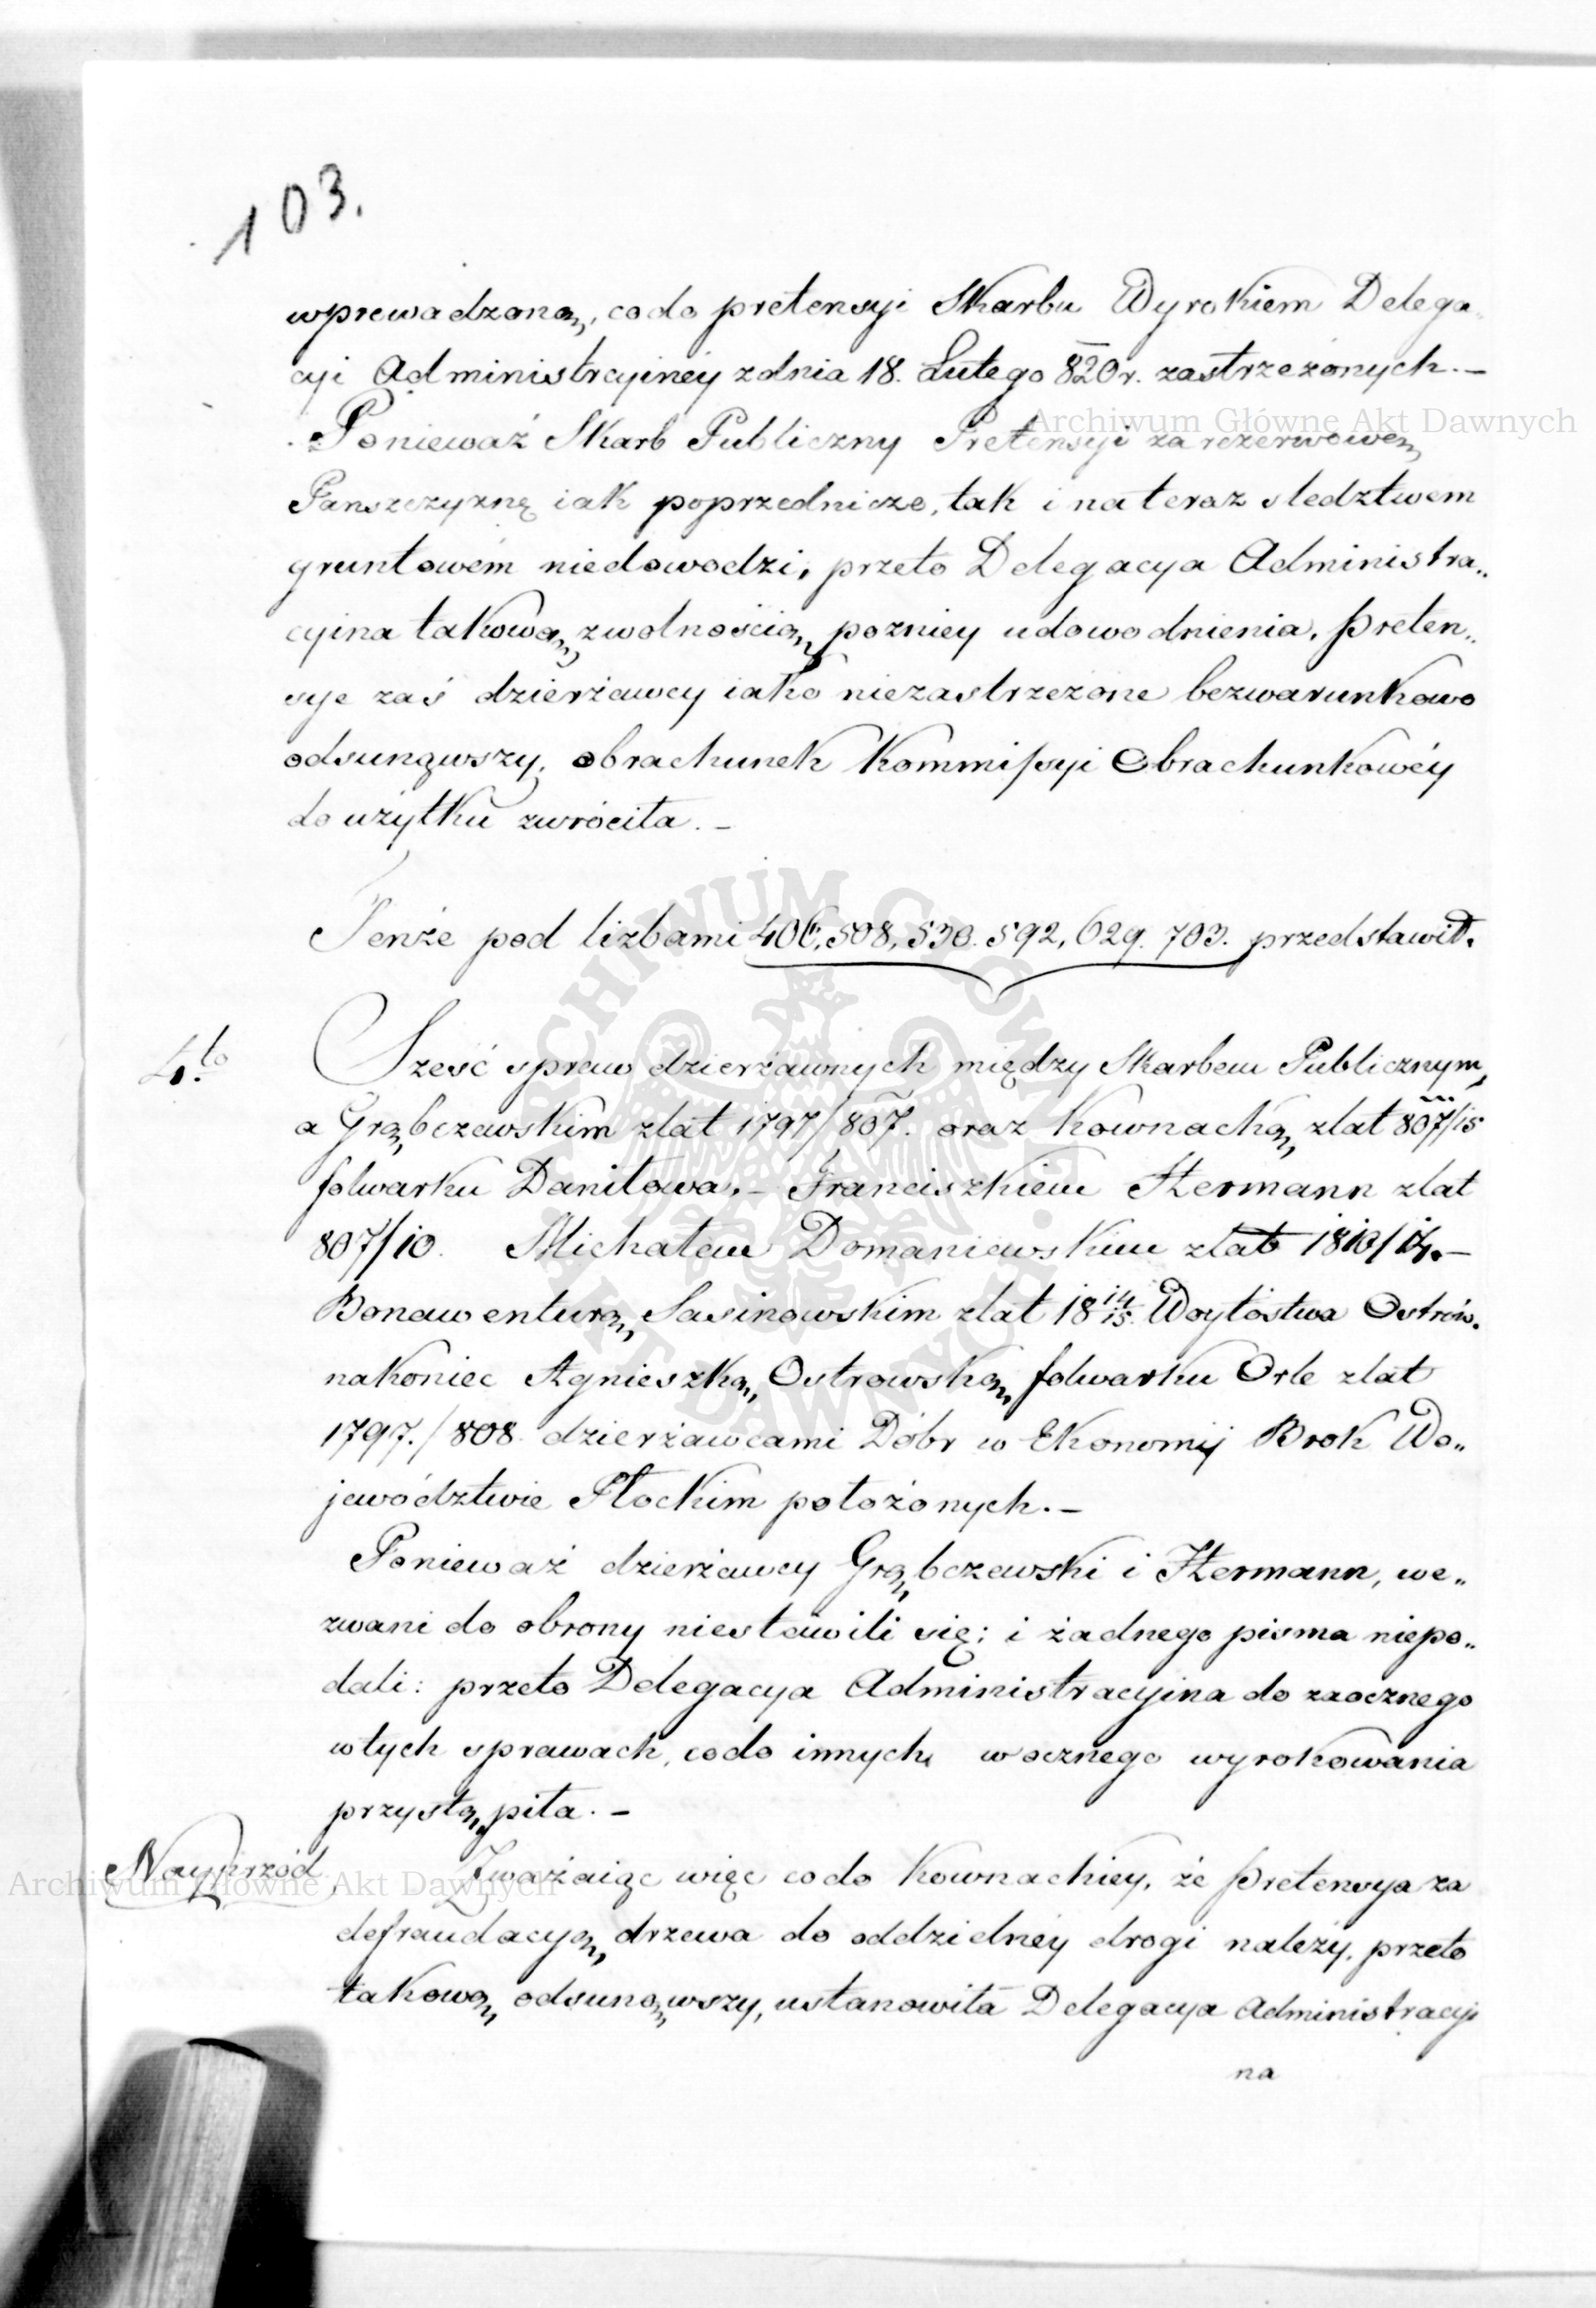 103.
wprowadzoną, co do pretensyi Skarbu Wyrokiem Delega-
cyi Administracyiney z dnia 18. Lutego 820 r. zastrzeżonych. —
Archiwum Główne Akt Dawnych
Ponieważ Skarb Publiczny Pretensyi za rezerwową
Panszczyznę iak poprzedniczo, tak i na teraz sledztwem
gruntowém niedowodzi, przeto Delegacya Administra„
cyina takową z wolnością pozniey udowodnienia, preten„
sye zaś dzierżawcy iako niezastrzeżone bezwarunkowo
odsunąwszy, obrachunek Kommissyi Obrachunkowéy
do użytku zwróciła. —
Tenże pod liczbami 406, 508, 530. 592, 629. 703. przedstawił.
4.to
Sześć spraw dzierżawnych między Skarbem Publicznym,
a Grąbczewskim z lat 1797/807. oraz Kownacką z lat 807/15
folwarku Daniłowa. — Franciszkiem Hermann z lat
807/10. Michałem Domaniewskim z lat 1810/14. —
Bonawenturą Sasinowskim z lat 18 14/15. Woytostwa Ostrów.
nakoniec Agnieszką Ostrowską folwarku Orle z lat
1797./808. dzierżawcami Dóbr w Ekonomij Brok Wo„
jewództwie Płockim położonych. —
Ponieważ dzierżawcy Grąbczewski i Hermann, we„
zwani do obrony niestawili się; i żadnego pisma niepo„
dali: przeto Delegacya Administracyina do zaocznego
w tych sprawach, co do innych w ocznego wyrokowania
przystąpiła. —
Nayprzód
Zważaiąc więc co do Kownackiey, że pretensya za
Archiwum Główne Akt Dawnych
defraudacyą drzewa do oddzielnéy drogi należy, przeto
takową odsunąwszy, ustanowiła Delegacya Administracyi
na